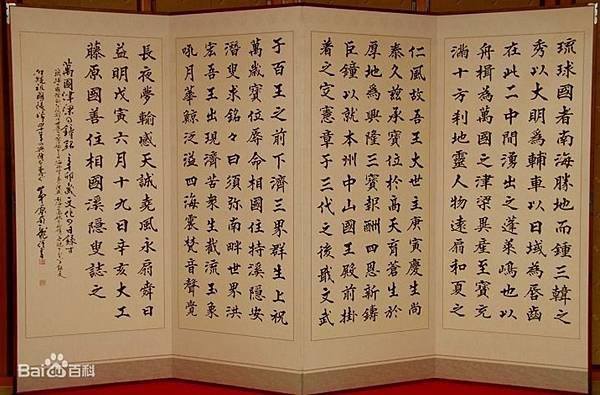 琉球國者南海勝地而鍾三韓之
秀以大明為輔車以日域為唇齒
在此二中間湧出之蓬萊嶋也以
舟楫為萬國之津梁異產至寶充
滿十方刹地靈人物遠扇和夏之
仁風故吾王大世主庚寅慶生尚
泰久茲承寶位於高天育蒼生於
厚地為興隆三寶報酬四恩新鑄
巨鐘以就本州中山國王殿前掛
著之定憲章于三代之後戢文武
于百王之前下濟三界群生上祝
萬歲寶位辱命相國住持溪隱安
潛叟求銘々曰須弥南畔世界洪
宏吾王出現濟苦衆生截流玉象
吼月華鯨泛溢四海震梵音聲覺
長夜夢輸感天誠堯風永扇舜日
益明戊寅六月十九日辛亥大工
藤原國善住相國溪隱叟誌之
萬國津梁の鐘銘
Bai百科